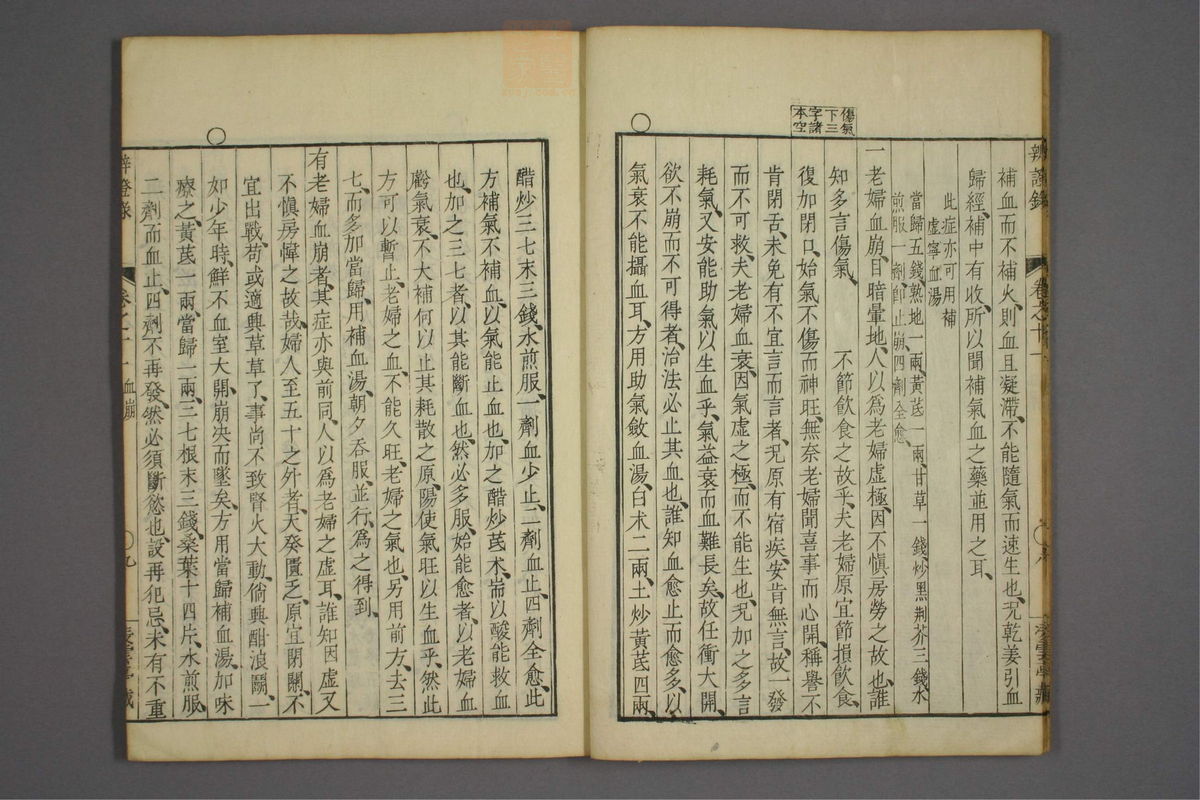 傷氣
下三
字諸
本空
補血而不補火、則血且凝滯、不能隨氣而速生也、況乾姜引血
歸經、補中有收、所以聞補氣血之藥並用之耳、
此症亦可用補
虛寧血湯
當歸五錢熟地一兩、黃芪一兩、甘草一錢炒黑荆芥三錢水
煎服一劑、卽止崩四劑全愈、
一老婦血崩、目暗暈地、人以爲老婦虛極、因不愼房勞之故也、誰
知多言傷氣、不節飲食之故乎、夫老婦原宜節損飲食、
復加閉口、始氣不傷而神旺、無奈老婦聞喜事而心開、稱譽不
肯閉舌、未免有不宜言而言者、況原有宿疾、安肯無言、故一發
而不可救、夫老婦血衰、因氣虛之極、而不能生也、況加之多言
耗氣、又安能助氣以生血乎、氣益衰而血難長矣、故任衝大開、
欲不崩而不可得者、治法必止其血也、誰知血愈止而愈多、以
氣衰不能攝血耳、方用助氣斂血湯、白朮二兩、土炒黃芪四兩、
醋炒三七末三錢、水煎服、一劑血少止、二劑血止、四劑全愈、此
方補氣不補血、以氣能止血也、加之醋炒芪朮、耑以酸能救血
也、加之三七者、以其能斷血也、然必多服、始能愈者、以老婦血
虧氣衰、不大補何以止其耗散之原、陽使氣旺以生血乎、然此
方可以暫止、老婦之血、不能久旺、老婦之氣也、另用前方、去三
七、而多加當歸、用補血湯、朝夕吞服、並行、爲之得到、
有老婦血崩者、其症亦與前同、人以爲老婦之虛耳、誰知因虛又
不愼房幃之故哉、婦人至五十之外者、天癸匱乏、原宜閉關、不
宜出戰、苟或適興草草了、事尚不致腎火大動、倘興酣浪鬬、一
如少年時、鮮不血室大開、崩决而墜矣、方用當歸補血湯、加味
療之、黃芪一兩、當歸一兩、三七根末三錢、桑葉十四片、水煎服、
二劑而血止、四劑不再發、然必須斷慾也、設再犯忌、未有不重
辨證錄 卷之十一 血崩 九